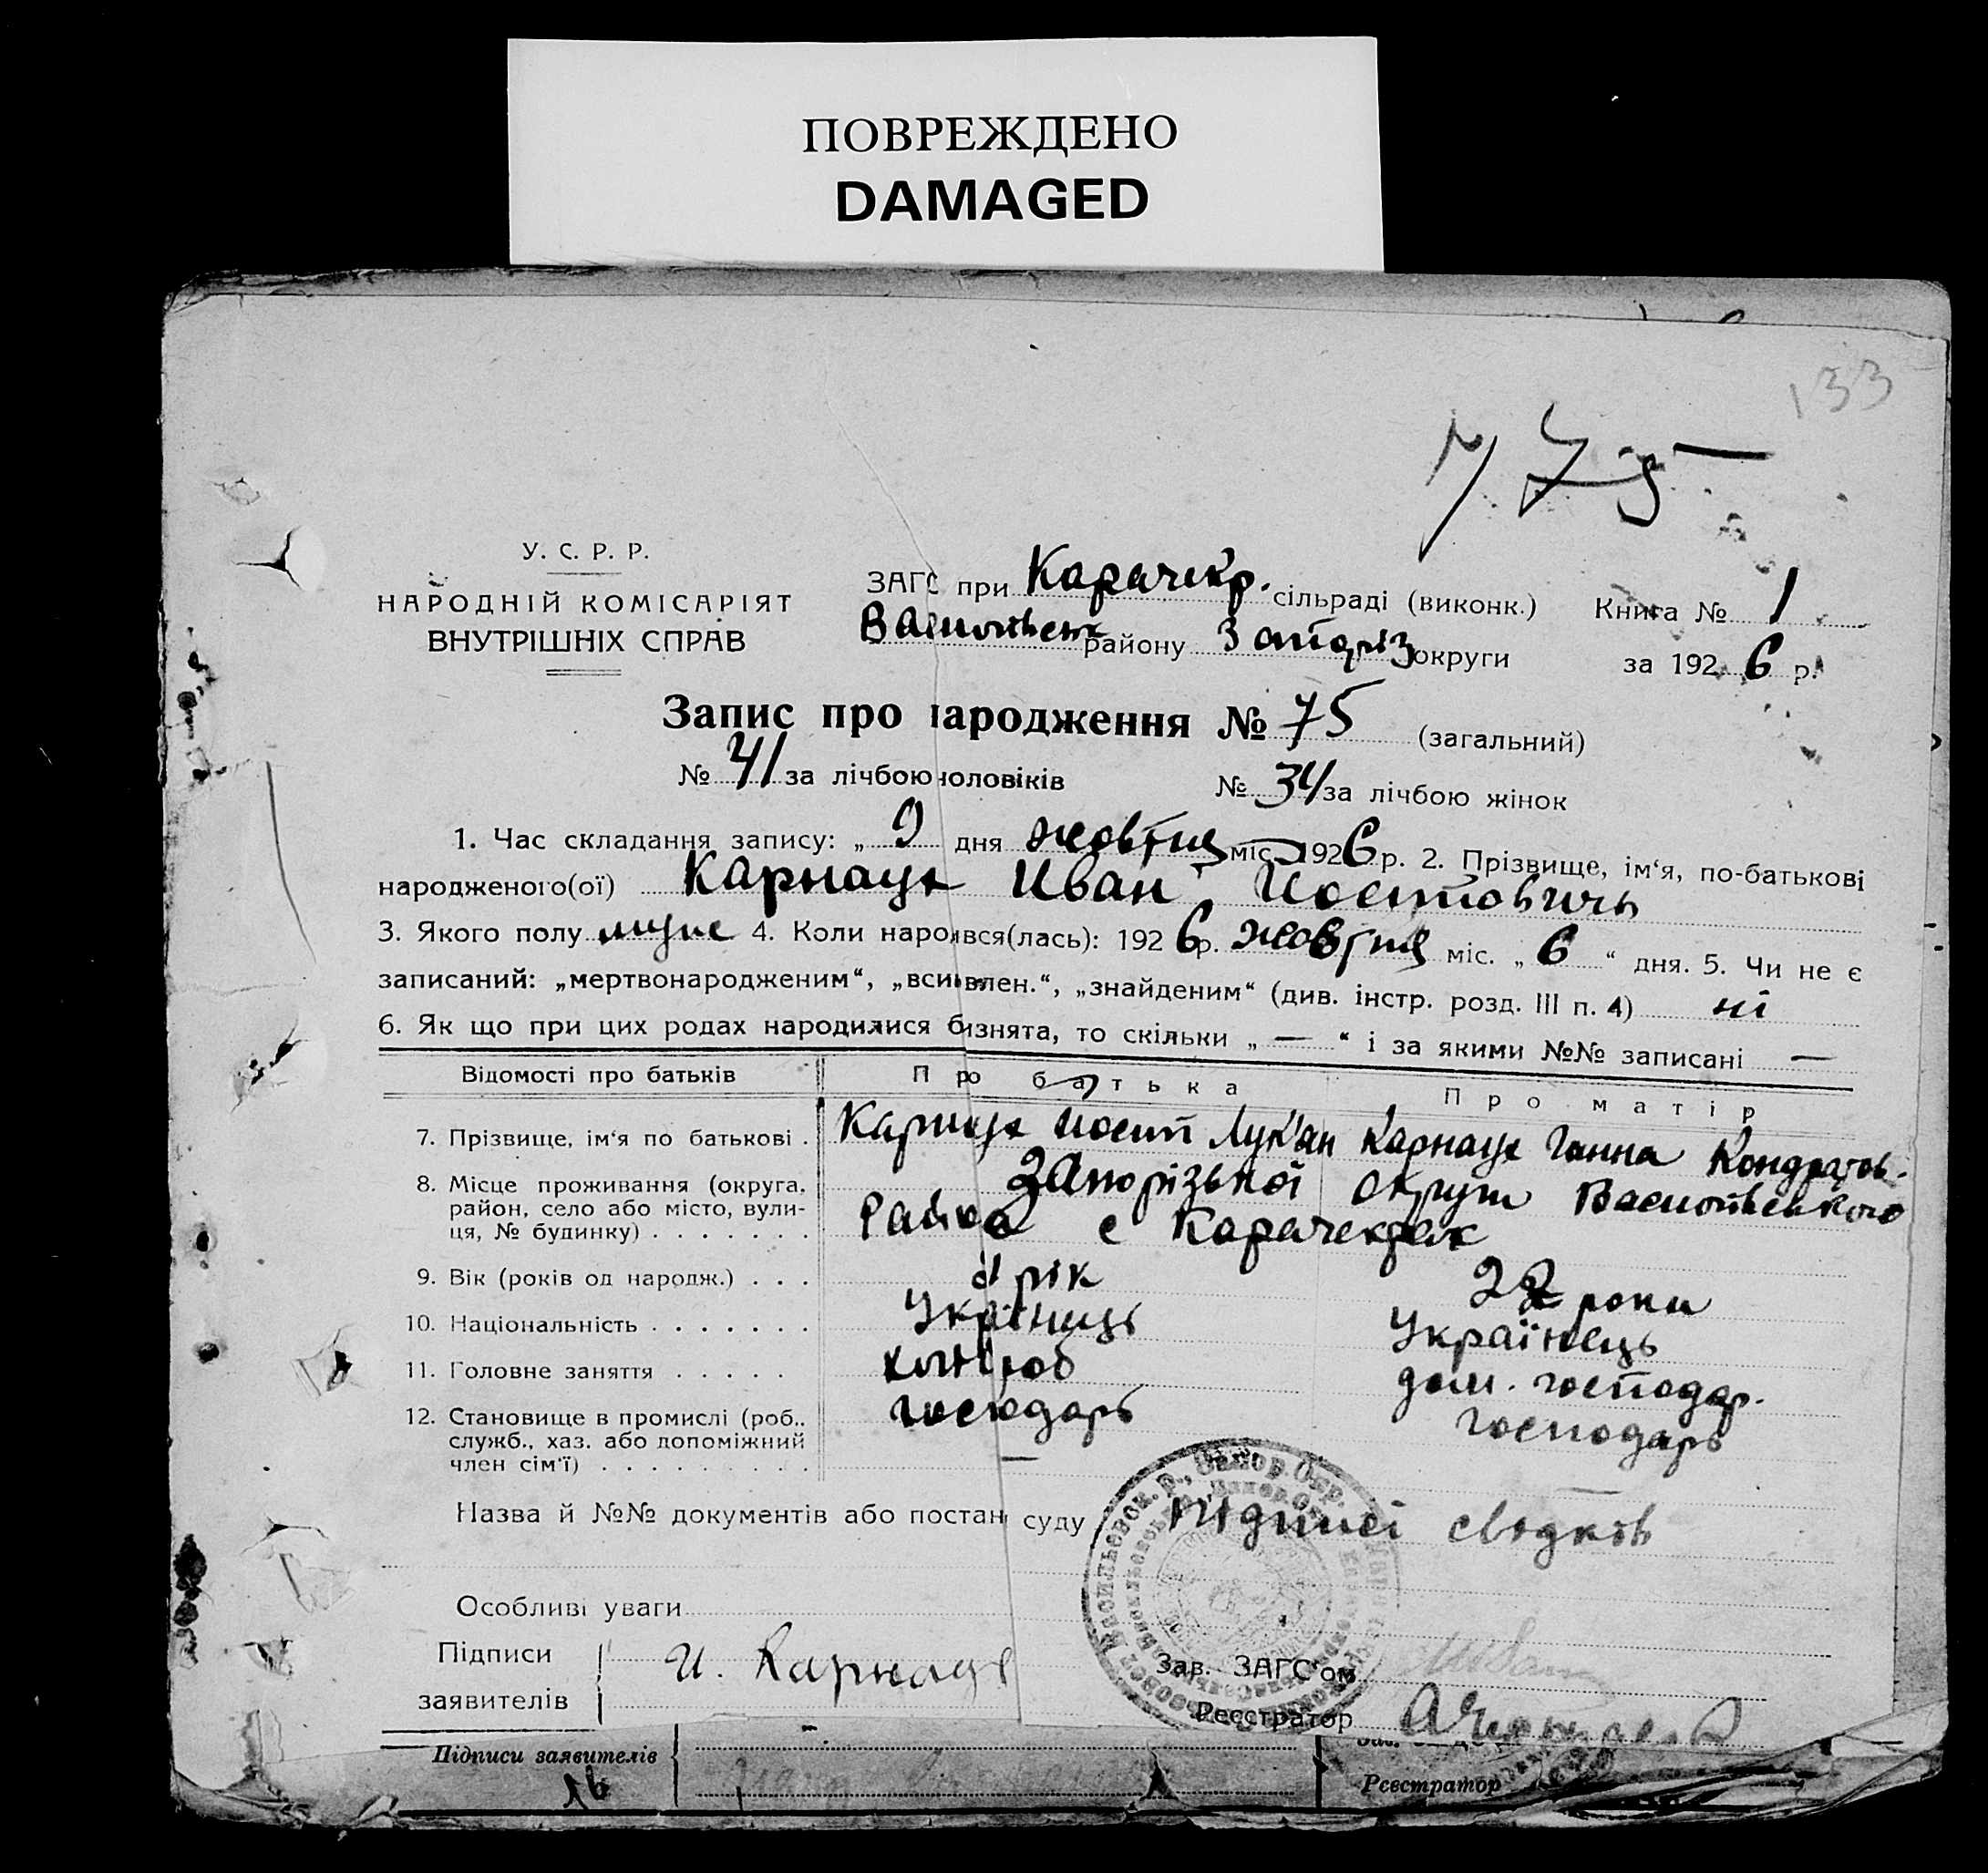 ПОВРЕЖДЕНО
DAMAGED
133
У. С. Р. Р.
НАРОДНІЙ КОМІСАРІЯТ
ВНУТРІШНІХ СПРАВ
ЗАГС при Карачекр. сільраді (виконк.) Книга № 1
району Запоріз округи за 192 6 р.
Запис про народження № 75 (загальний)
№ 41 за лічбою чоловіків № 34 за лічбою жінок
1. Час складання запису: „ 9 дня жовтня міс. 1926 р. 2. Прізвище, ім‘я, по-батькові
народженого(ої) Карнаух Иван
3. Якого полу муже 4. Коли народився(лась): 192 6 р. жовтня міс. „ 6 “ дня. 5. Чи не є
записаний: „мертвонародженим“, „всиновлен.“, „знайденим“ (див. інстр. розд. III п. 4) ні
6. Як що при цих родах народилися близнята, то скільки „ — “ і за якими №№ записані —
Відомості про батьків Про батька Про матір
7. Прізвище, ім‘я по батькові . Карнаух Лук'ян Карнаух Ганна Кондратов.
8. Місце проживання (округа, район, село або місто, вулиця, № будинку) Запорізької округи Василівського
Району с Карачекрак
9. Вік (років од народж.) . . . рік 22 роки
10. Національність Українець Українець
11. Головне заняття хлібороб дом. господар.
12. Становище в промислі (роб., служб., хаз. або допоміжний член сім‘ї) господарь господарь
—
Назва й №№ документів або постан суду Підписі свідків
Особливі уваги
Підписи
заявителів И. Карнаух
Зав. ЗАГС‘ом
Реєстратор
Підписи заявителів
Реєстратор